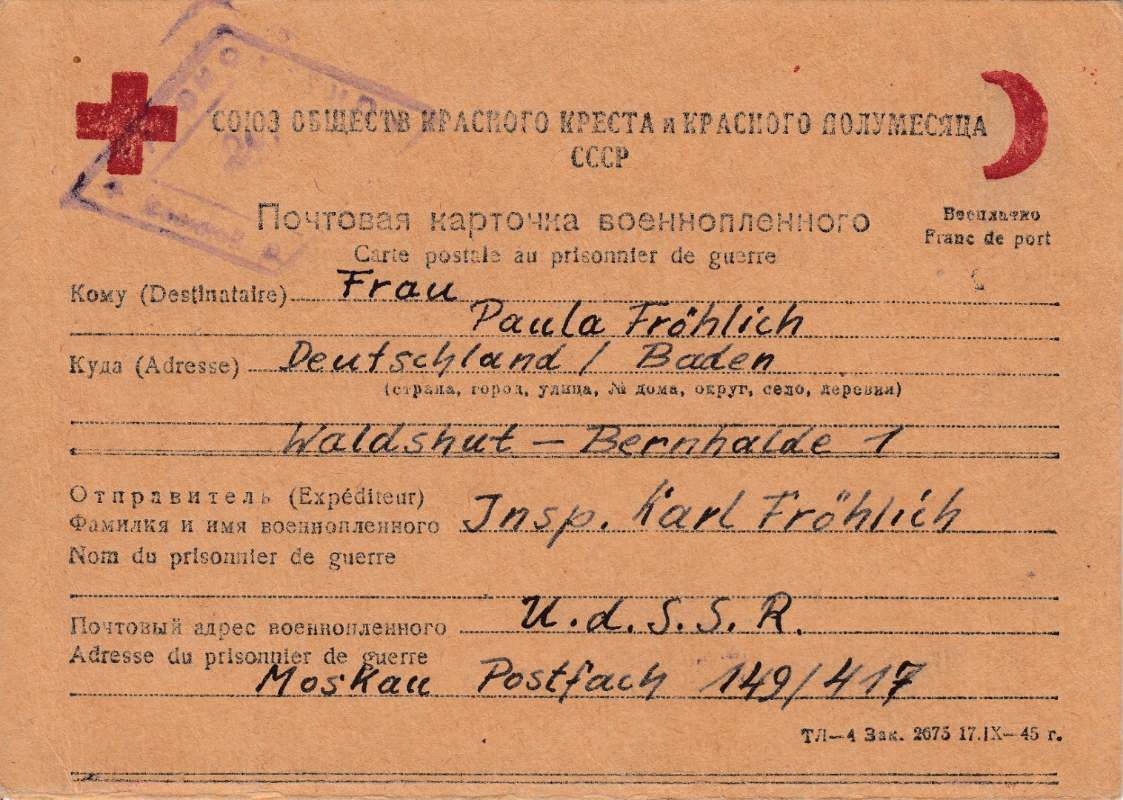 СОЮЗ ОБЩЕСТВ КРАСНОГО КРЕСТА и КРАСНОГО ПОЛУМЕСЯЦА
СССР
Почтовая карточка военнопленного
Бесплатно
Carte postale au prisonnier de guerre
Franc de port
Кому (Destinataire) Frau
Paula Fröhlich
Куда (Adresse) Deutschland / Baden
(страна, город, улица, № дома, округ, село, деревня)
Waldshut – Bernhalde 1
Отправитель (Expéditeur)
Фамилия и имя военнопленного Insp. Karl Fröhlich
Nom du prisonnier de guerre
Почтовый адрес военнопленного U.d.S.S.R.
Adresse du prisonnier de guerre
Moskau Postfach 149/417
ТЛ—4 Зак. 2675 17.IX—45 г.